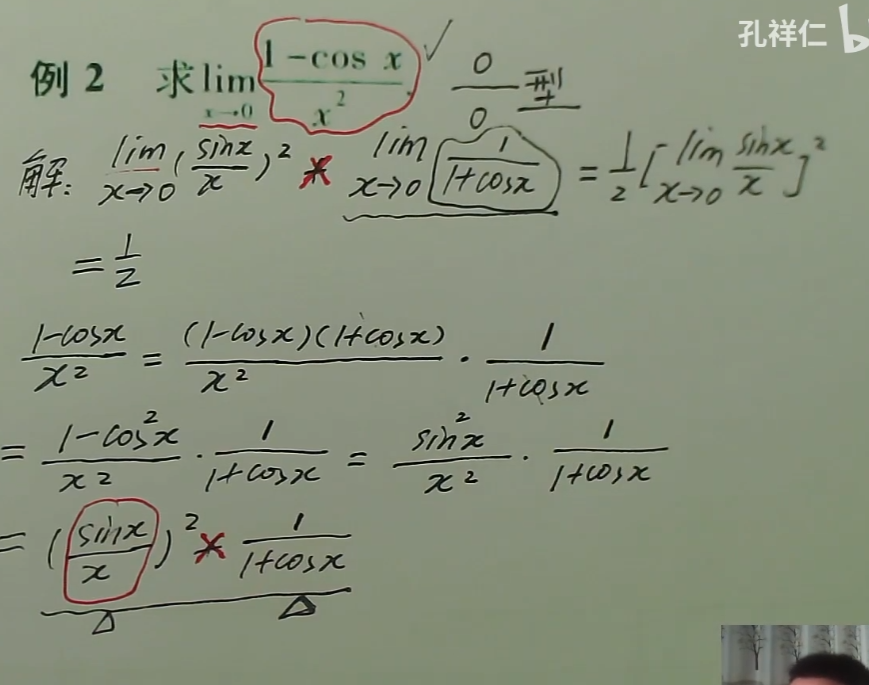 孔祥仁 b
例 2 求 lim x→0 (1-cos x)/x² ✓ 0/0 型
解: lim x→0 (sinx/x)² × lim x→0 1/(1+cosx) = 1/2 [lim x→0 sinx/x]²
= 1/2
(1-cosx)/x² = (1-cosx)(1+cosx)/x² · 1/(1+cosx)
= (1-cos²x)/x² · 1/(1+cosx) = sin²x/x² · 1/(1+cosx)
= (sinx/x)² × 1/(1+cosx)